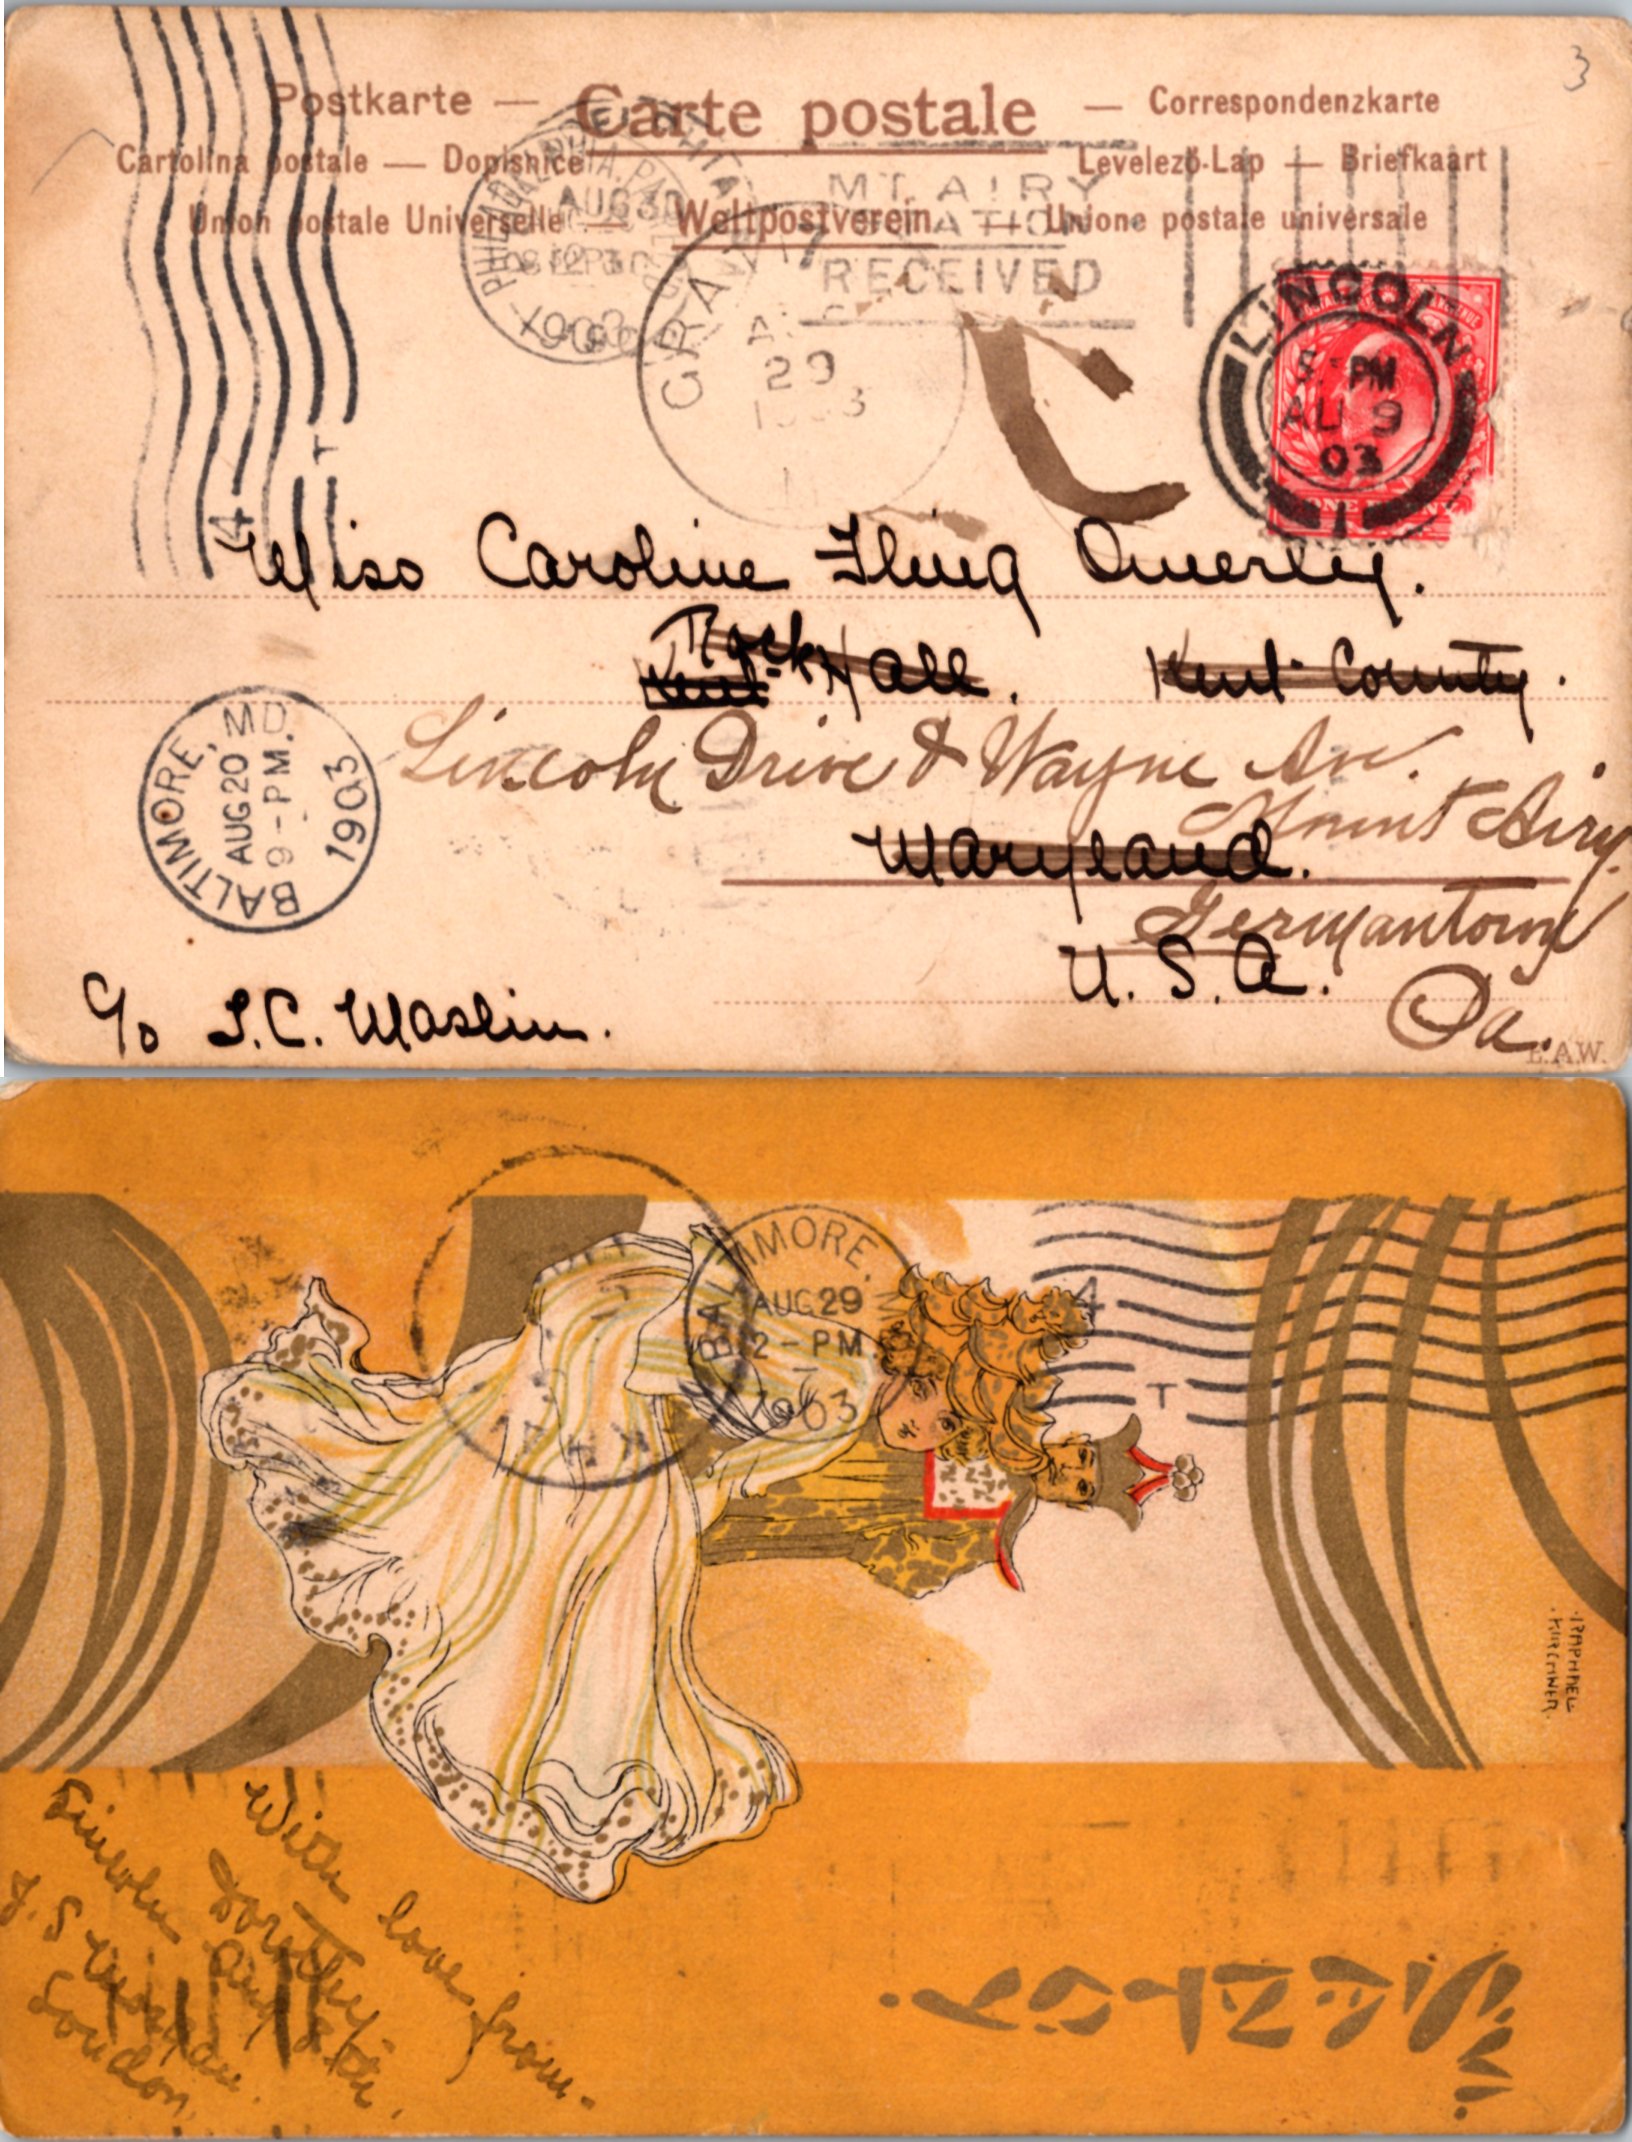 3
Postkarte — Carte postale — Correspondenzkarte
Cartolina postale — Dopisnice Levelező-Lap — Briefkaart
Union postale Universelle — Weltpostverein — Unione postale universale
PHILADELPHIA, PA.
AUG 30
1903
MT. AIRY
STATION
RECEIVED
GRAV
29
LINCOLN
PM
AU 9
03
1
4
T
Miss Caroline Fling
Rock Hall. Kent County.
Kent
Lincoln Drive & Wayne Ave.
Mount Airy.
Maryland.
Germantown
U. S. A.
Pa.
BALTIMORE, MD.
AUG 20
9-PM.
1903
c/o T.C. Maslin.
E.A.W.
BALTIMORE, M
AUG 29
2-PM
03
4
T
RAPHAEL
KIRCHNER.
With love from
Dorothy.
Lincoln Aug 8th.
London